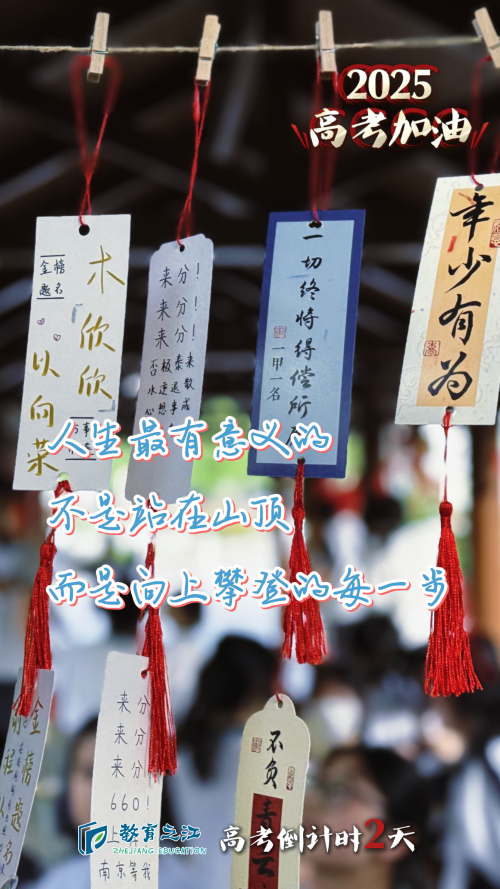 2025
高考加油
金榜
题名
木欣欣
以向荣
万事
来分！
来分！
来分！
否极泰来
水逆退散
心想事成
一切终将得偿所
一甲一名
年少有为
人生最有意义的
不是站在山顶
而是向上攀登的每一步
金榜题名
来分
来分
来分
660！
上
南京等我
不负
教育之江
ZHEJIANG EDUCATION
高考倒计时2天